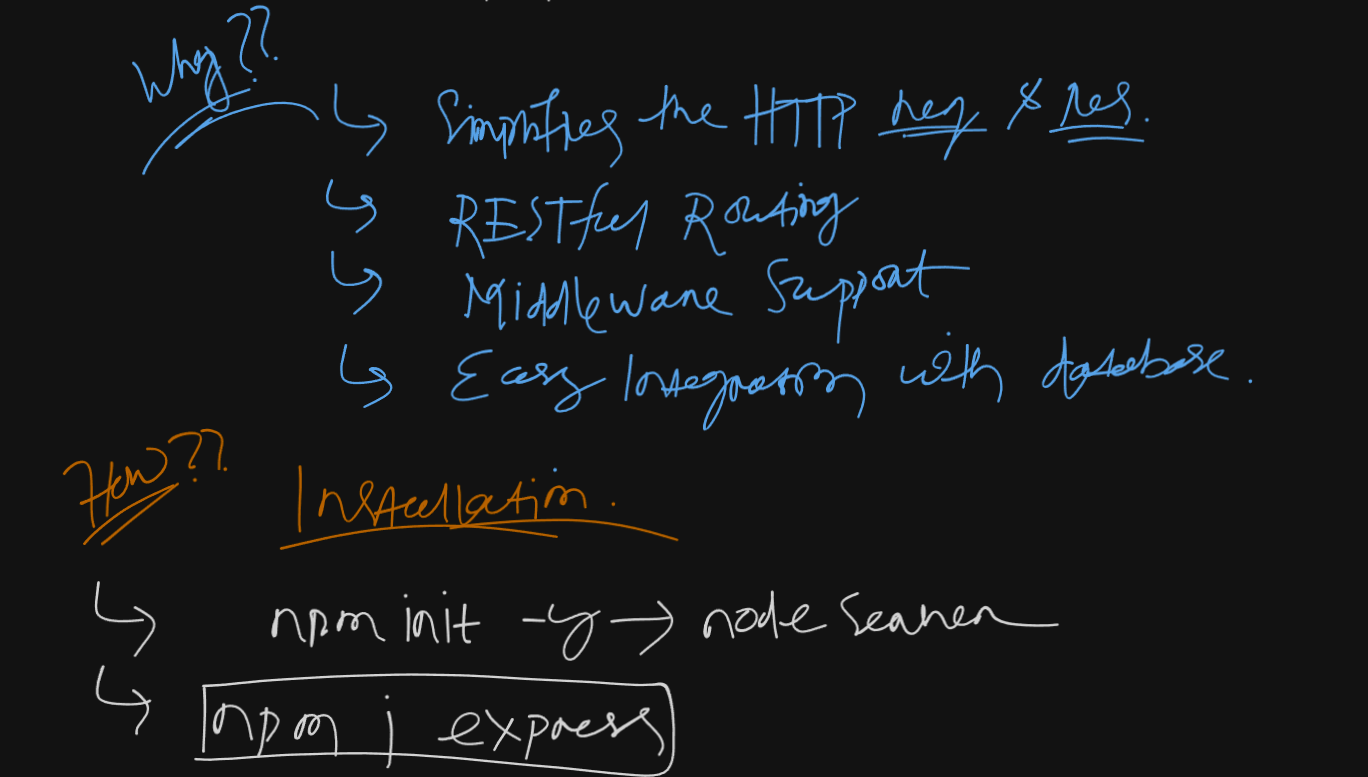 Why??
↳ Simplifies the HTTP req & res.
↳ RESTful Routing
↳ Middleware Support
↳ Easy Integration with database.
How??
Installation.
↳ npm init -y → node server
↳ npm i express